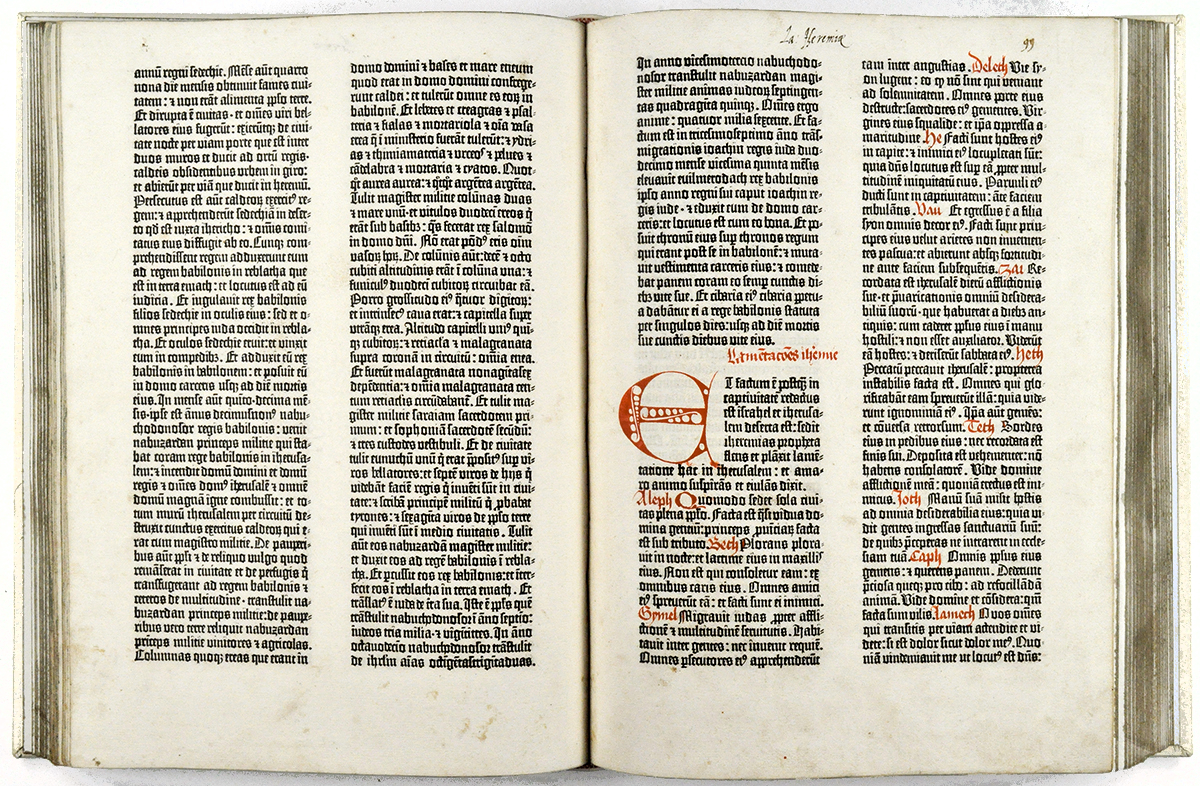 annū regni sedechie. Mēse aūt quarto
nona die mensis obtinuit fames civi-
tatem: ⁊ non erāt alimenta pplo terre.
Et dirupta ē civitas· et oīnes viri bel-
latores eius fugerūt: exierūtq; de civi-
tate nocte per viam porte que est inter
duos muros et ducit ad ortū regis·
caldeis obsidentibus urbem in giro:
et abierūt per viā que ducit in heremū.
Persecutus est aūt caldeorū exercit⁹ re-
gem: ⁊ apprehenderūt sedechiā in deser-
to qd est iuxta ihericho: ⁊ oīnis comi-
tatus eius diffugit ab eo. Cunq; com-
prehendissent regem adduxerunt eum
ad regem babilonis in reblatha que
est in terra emath: et locutus est ad eū
iudicia. Et iugulavit rex babilonis
filios sedechie in oculis eius: sed et o-
mnes principes iuda occidit in rebla-
tha. Et oculos sedechie eruit: et vinxit
eum in compedibz. Et adduxit eū rex
babilonis in babilonem: et posuit eū
in domo carceris usq; ad diē mortis
eius. In mense aūt quīto·decima mē-
sis·ipse est annus decimusnon⁹ nabu-
chodonosor regis babilonis: venit
nabuzardan princeps milicie qui sta-
bat coram rege babilonis in iherusa-
lem: ⁊ incendit domū domini et domū
regis ⁊ oīnes dom⁹ iherusalē ⁊ omnē
domū magnā igne combussit: et to-
tum murū iherusalem per circuitū de-
struxit cunctus exercitus caldeorū qui e-
rat cum magistro milicie. De pauperi-
bus aūt ppli ⁊ de reliquo vulgo quod
remāserat in civitate et de perfugis q̄
transfugerant ad regem babilonis ⁊
ceteros de multitudine· transtulit na-
buzardan princeps milicie: de paupe-
ribus vero terre reliquit nabuzardan
princeps milicie vinitores ⁊ agricolas.
Columnas quoq; ereas que erant in
domo domini ⁊ bases et mare eneum
quod erat in domo domini confrege-
runt caldei: et tulerūt omne es eorū in
babilonē. Et lebetes et creagras ⁊ psal-
teria ⁊ fialas ⁊ mortariola ⁊ oīa vasa
erea q̄ ī ministerio fuerāt tulerūt: ⁊ ydri-
as ⁊ thimiamateria ⁊ urceos ⁊ pelues ⁊
cādelabra ⁊ mortaria ⁊ cyatos. Quot-
q̄t aurea aurea: ⁊ q̄tq̄t argētea argētea.
Tulit magister milicie colūnas duas
⁊ mare unū·et vitulos duodecī ereos q̄
erāt sub basibz: q̄s fecerat rex salomō
in domo dn̄i. Nō erat pōd⁹ eris oīm
vasorū horū. De colūnis aūt: decē ⁊ octo
cubiti altitudinis erāt ī colūna una: ⁊
funicul⁹ duodecī cubitorū circuibat eā.
Porro grossitudo ei⁹ q̄tuor digitorū:
et intrinsec⁹ cava erat: ⁊ capitella super
utrāq; erea. Altitudo capitelli uni⁹ quī-
q; cubitorū: ⁊ reciacla ⁊ malagranata
supra coronā in circuitu: omnia erea.
Et fuerūt malagranata nonagītasex
depēdentia: ⁊ oīnia malagranata cen-
tum reciaclis circūdabant. Et tulit ma-
gister milicie saraiam sacerdotem pri-
mum: et sophoniā sacerdotē secūdū:
⁊ tres custodes vestibuli. Et de civitate
tulit eunuchū unū q̄ erat p̄posit⁹ sup vi-
ros bellatores: et septē viros de hijs q̄
videbāt faciē regis q̄ invēti sūt in civi-
tate: ⁊ scribā principē militū q̄ p̄babat
tyrones: ⁊ sexagīta viros de pplo terre
qui invēti sūt ī medio civitatis. Tulit
aūt eos nabuzardā magister milicie:
et duxit eos ad regē babilonis ī rebla-
tha. Et pcussit eos rex babilonis: et iter-
fecit eos ī reblatha in terra emath. Et
trāslat⁹ ē iuda de t̄ra sua. Iste ē ppl̄s quē
trāstulit nabuchodonosor: ī āno septīo:
iudeos tria milia·⁊ vigītitres. In āno
octavodecīo nabuchodonosor trāstulit
de ihrl̄m aīas octīgētastrigītaduas.
La: Ieremiæ
99
In anno vicesimotercio nabuchodo-
nosor transtulit nabuzardan magi-
ster milicie animas iudeorū septingen-
tas quadraginta quinq;. Oīnes ergo
anime: quatuor milia sexcente. Et fa-
ctum est in tricesimoseptimo āno trās-
migrationis ioachin regis iuda duo-
decimo mense vicesima quinta mēsis
elevavit euilmerodach rex babilonis
ipso anno regni sui caput ioachin re-
gis iude·⁊ eduxit eum de domo car-
ceris: et locutus est cum eo bona. Et po-
suit thronū eius sup thronos regum
qui erant post se in babilonē: ⁊ muta-
vit vestimenta carceris eius: ⁊ comede-
bat panem coram eo semp cunctis di-
ebz vite sue. Et cibaria ei⁹ cibaria ppetu-
a dabātur ei a rege babilonis statuta
per singulos dies: usq; ad diē mortis
sue cunctis diebus vite eius.
Lamētacōes ihēmie
ET factum ē postq̄ in
captivitatē redactus
est israhel et iherusa-
lem deserta est: sedit
iheremias propheta
flens et plāxit lamē-
tatione hac in iherusalem: et ama-
ro animo suspirās et eiulās dixit.
Aleph Quomodo sedet sola civi-
tas plena pplo. Facta est q̄si vidua do-
mina gentiū: princeps p̄vinciarū facta
est sub tributo. Beth Plorans plora-
vit in nocte: et lacrime eius in maxill⁹
eius. Non est qui consoletur eam: ex
omnibus caris eius. Omnes amici
ei⁹ spreverūt eā: et facti sunt ei inimici.
Gymel Migravit iudas ꝓpter affli-
ctionē ⁊ multitudinē servitutis. Habi-
tavit inter gentes: nec invenit requiē.
Omnes p̄secutores ei⁹ apprehenderūt
eam inter angustias. Deleth Vie sy-
on lugent: eo q̄ nō sint qui veniant
ad solennitatem. Omnes porte eius
destructe: sacerdotes ei⁹ gementes. Vir-
gines eius squalide: et ip̄a oppressa a-
maritudine. He Facti sunt hostes ei⁹
in capite: ⁊ inimici ei⁹ locupletati sūt:
quia dn̄s locutus est sup eā ꝓpter mul-
titudinē iniquitatū eius. Parvuli ei⁹
ducti sunt in captivitatem: āte faciem
tribulātis. Vau Et egressus ē a filia
syon omnis decor ei⁹. Facti sunt prin-
cipes eius velut arietes non invenien-
tes pascua: et abierunt absq; fortitudi-
ne ante faciem subsequētis. Zai Re-
cordata est iherusalē dierū afflictionis
sue·et p̄varicationis omniū desidera-
biliū suorū·que habuerat a diebz an-
tiquis: cum caderet pplus eius ī manu
hostili: ⁊ non esset auxiliator. Viderūt
eā hostes: ⁊ deriserūt sabbata ei⁹. Heth
Peccatū peccavit iherusalē: propterea
instabilis facta est. Omnes qui glo-
rificabāt eam spreverūt illā: quia vide-
runt ignominiā ei⁹. Ip̄a aūt gemēs:
et cōversa retrorsum. Teth Sordes
eius in pedibus eius: nec recordata est
finis sui. Deposita est vehementer: nō
habens consolatorē. Vide domine
afflictionē meā: quoniā erectus est ini-
micus. Ioth Manū suā misit hostis
ad omnia desiderabilia eius: quia vi-
dit gentes ingressas sanctuariū suū:
de quibz p̄ceperas ne intrarent in eccle-
siam tuā. Caph Omnis pplus eius
gemens: ⁊ querens panem. Dederunt
preciosa queq; pro cibo: ad refocillādā
animā. Vide domine et cōsidera: q̄m
facta sum vilis. Lamech O vos oīnes
qui transitis per viam attendite et vi-
dete: si est dolor sicut dolor me⁹. Quo-
niā vindemiavit me ut locut⁹ est dn̄s: